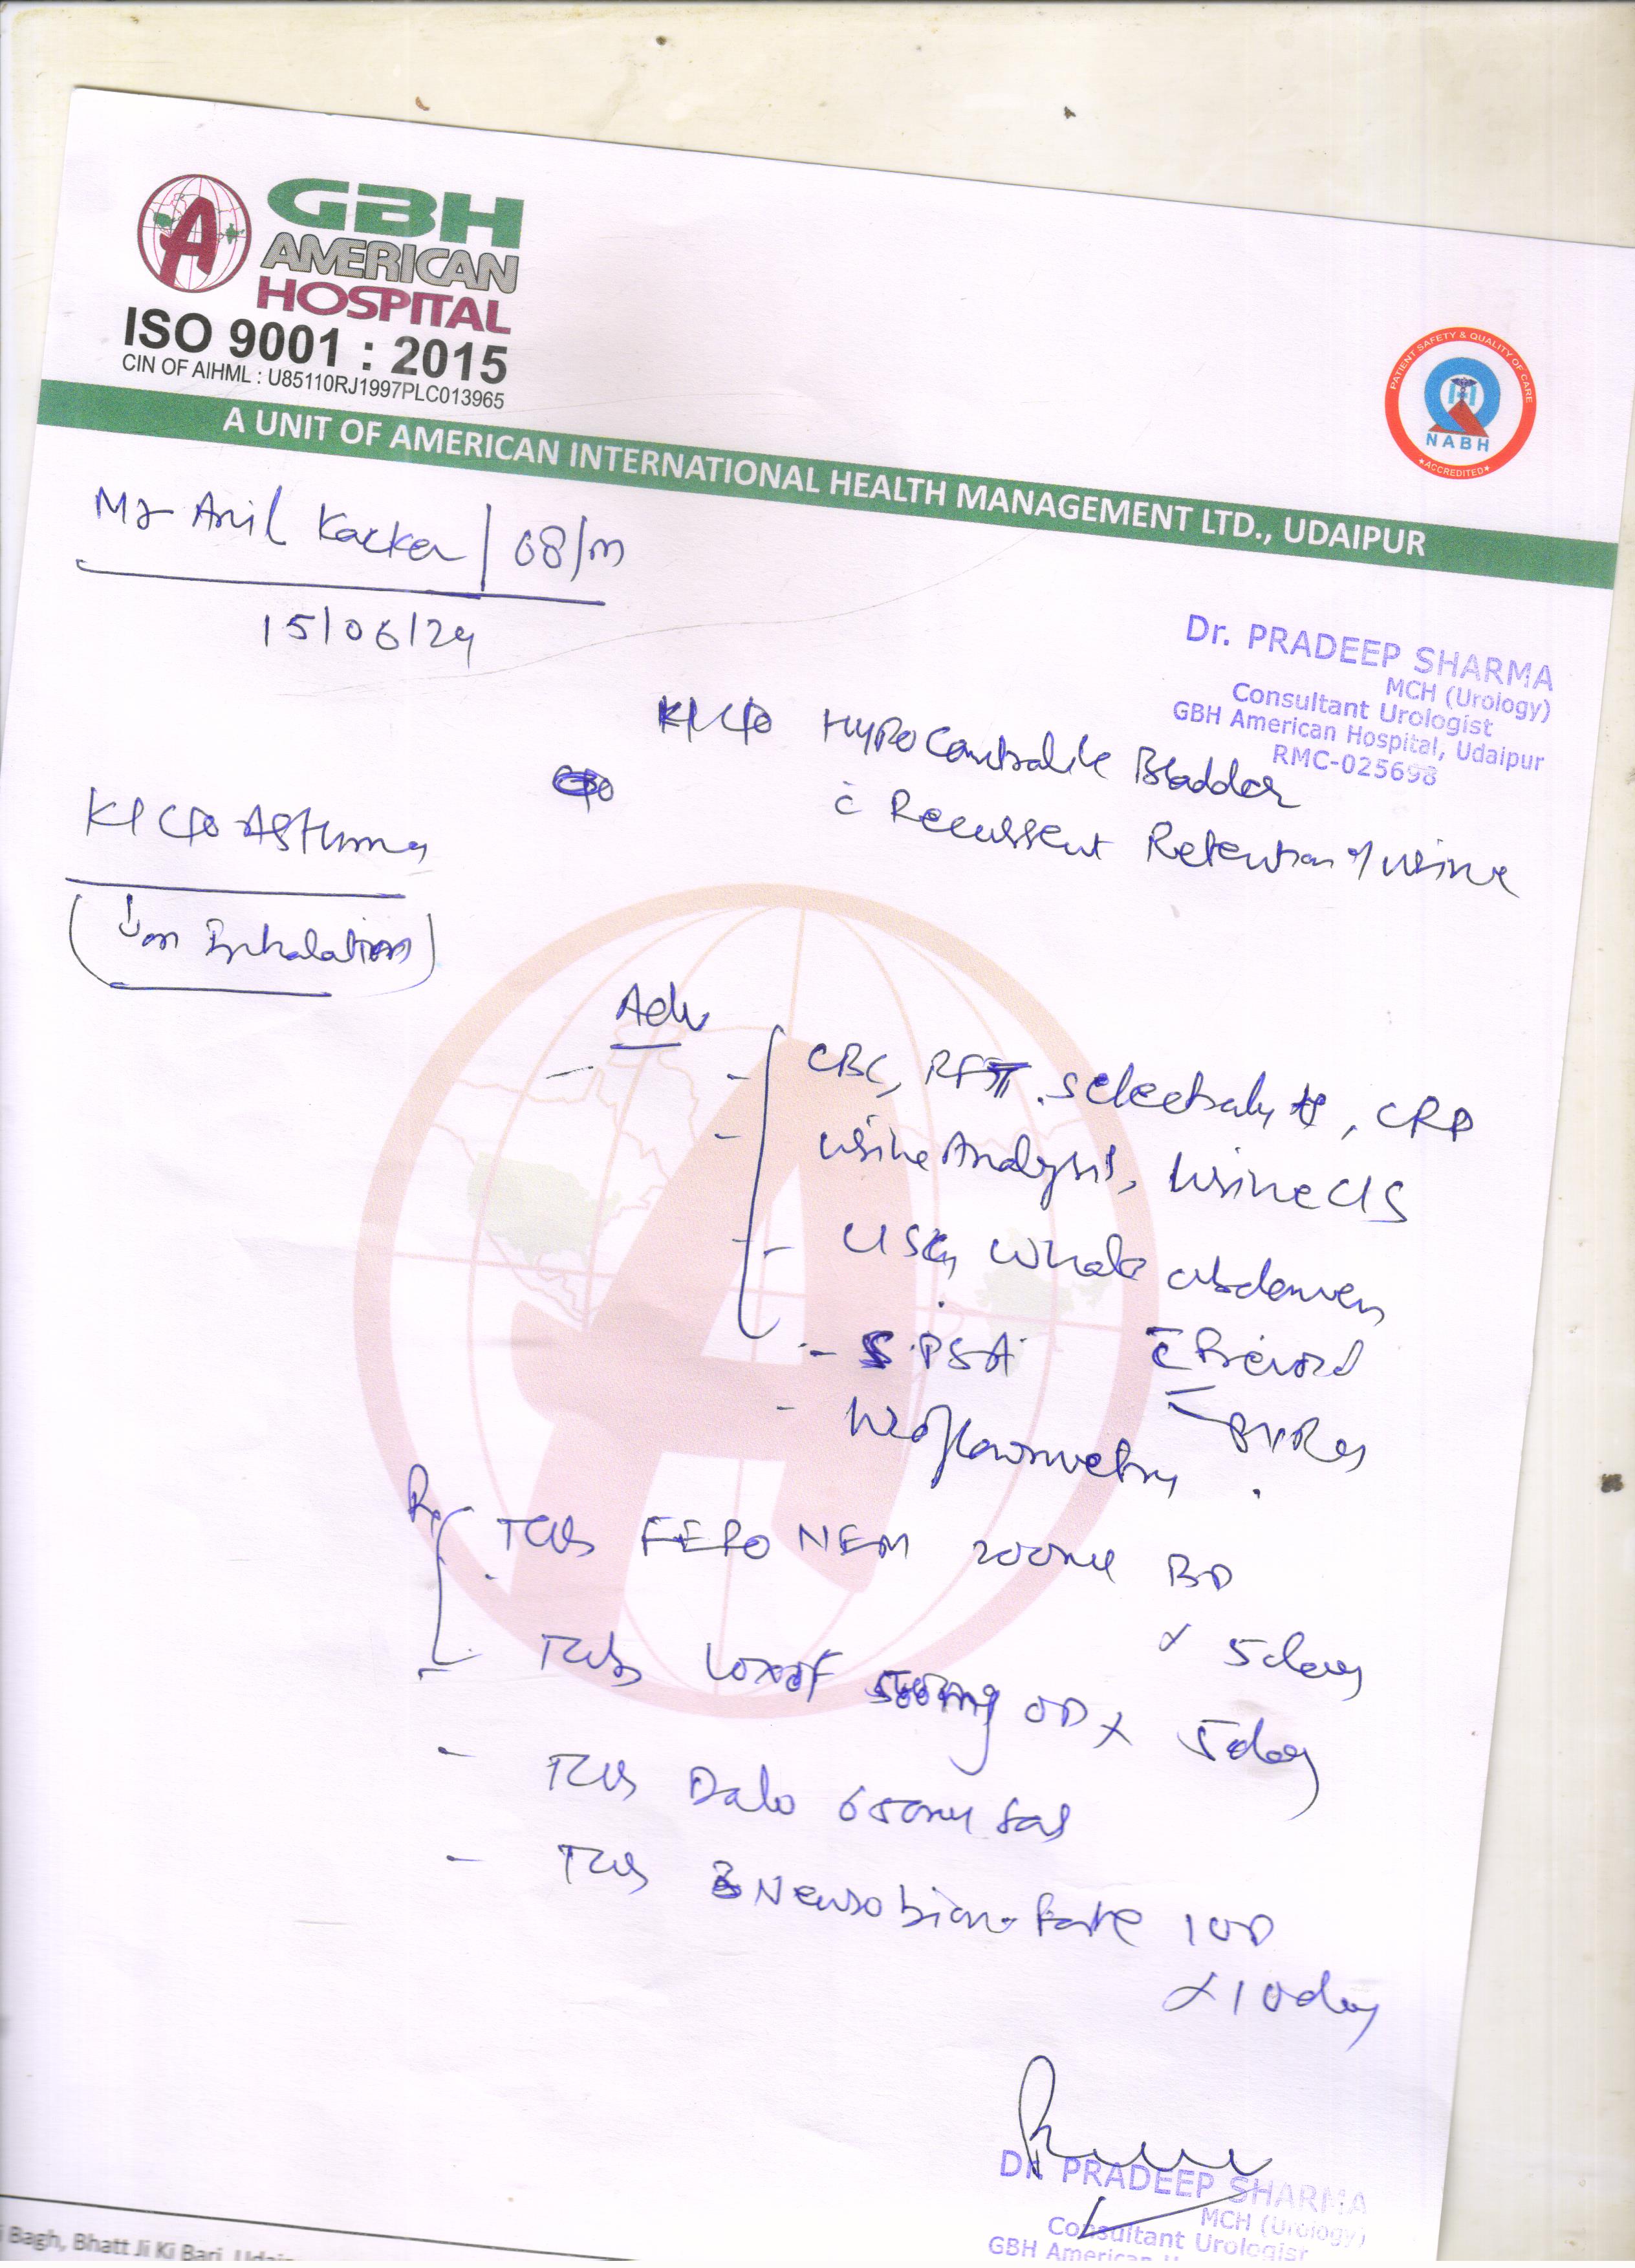 GBH
AMERICAN
HOSPITAL
ISO 9001 : 2015
CIN OF AIHML : U85110RJ1997PLC013965
PATIENT SAFETY & QUALITY OF CARE
NABH
ACCREDITED
A UNIT OF AMERICAN INTERNATIONAL HEALTH MANAGEMENT LTD., UDAIPUR
Mr Anil Kacker / 68/m
15/06/24
Dr. PRADEEP SHARMA
MCH (Urology)
Consultant Urologist
GBH American Hospital, Udaipur
RMC-025698
K/C/o Hypocontractile Bladder
c̄ Recurrent Retention of urine
K/C/o Asthma
(on Inhalation)
Adv
- CBC, RFT, S electrolyte, CRP
- urine Analysis, urine C/S
- USG whole abdomen
- S. PSA c̄ Prevoid
- Uroflowmetry - PVRU
Rx
Tab FERONEM 200mg BD
x 5day
- Tab Loxof 500mg OD x 5day
- Tab Dolo 650mg sos
- Tab Neurobion-Forte 1OD
x 10day
Dr PRADEEP SHARMA
MCH (Urology)
Consultant Urologist
GBH American
Bagh, Bhatt Ji Ki Bari, Udai